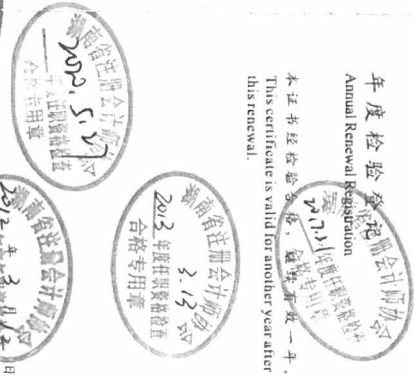 年度检验登记
Annual Renewal Registration
本证书经检验合格，继续有效一年。
This certificate is valid for another year after
this renewal.
南省注册会计师协会
年度任职资格检查
南省注册会计师协会
3.13
2013年度任职资格检查
合格专用章
南省注册会计师协会
5.27
年度任职资格检查
合格专用章
南省注册会计师协会
2012年3月12日